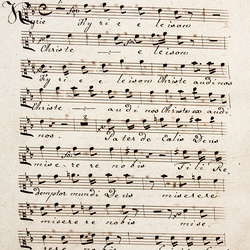 Kyrie Kyrie eleison
Christe e eleison
Kyrie eleison Christe audi nos
Christe audi nos Christe ex audi
nos. Pater de Celis Deus
miserere nobis Fili Re
demptor mundi Deus miserere
miserere nobis mise
rere no